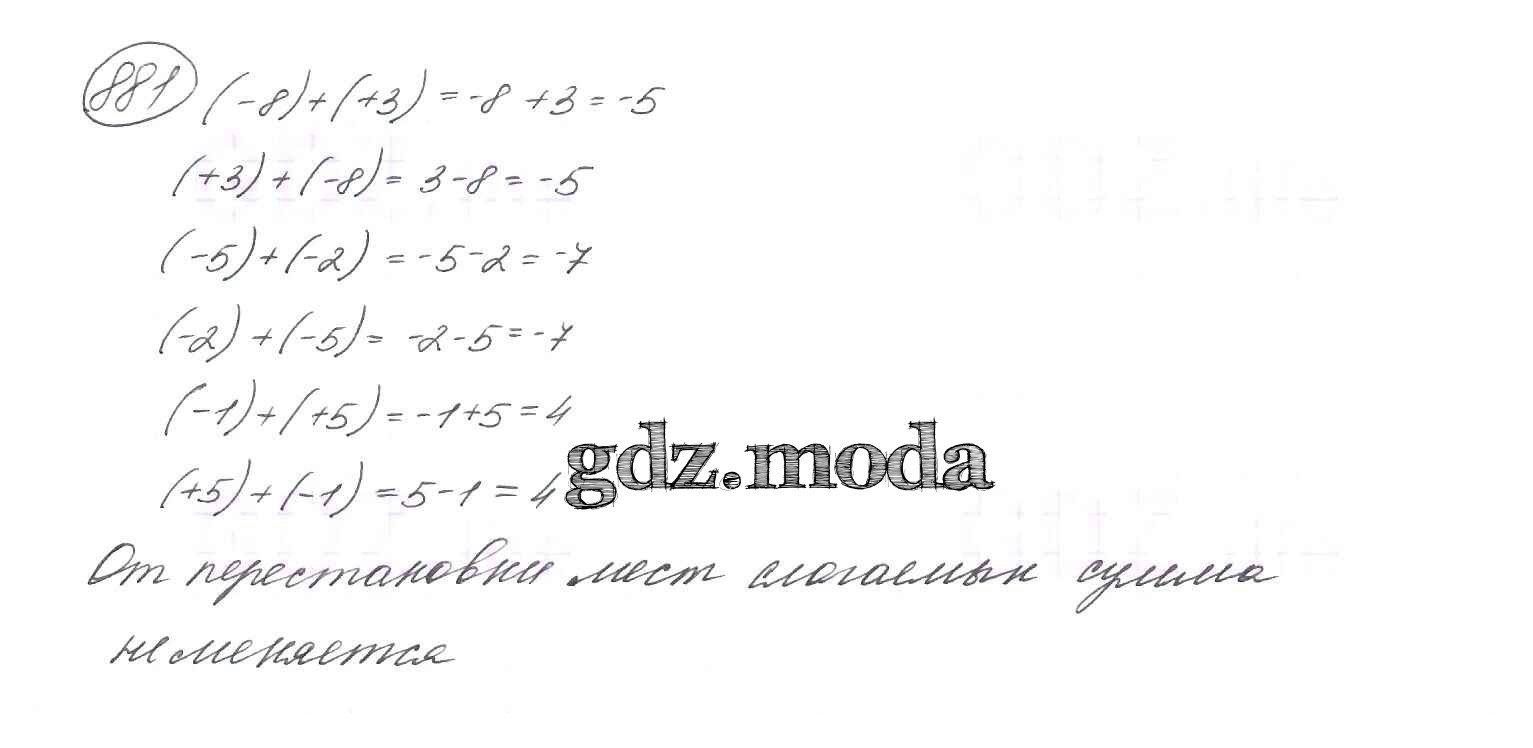 881 (-8)+(+3) = -8 +3 = -5
(+3) + (-8) = 3-8 = -5
(-5)+(-2) = -5-2 = -7
(-2) + (-5) = -2-5 = -7
(-1)+(+5) = -1+5 = 4
(+5)+(-1) = 5-1 = 4
gdz.moda
От перестановки мест слогаемых сумма
не меняется